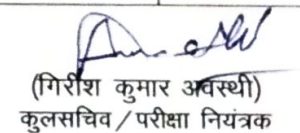 (गिरीश कुमार अवस्थी)
कुलसचिव / परीक्षा नियंत्रक